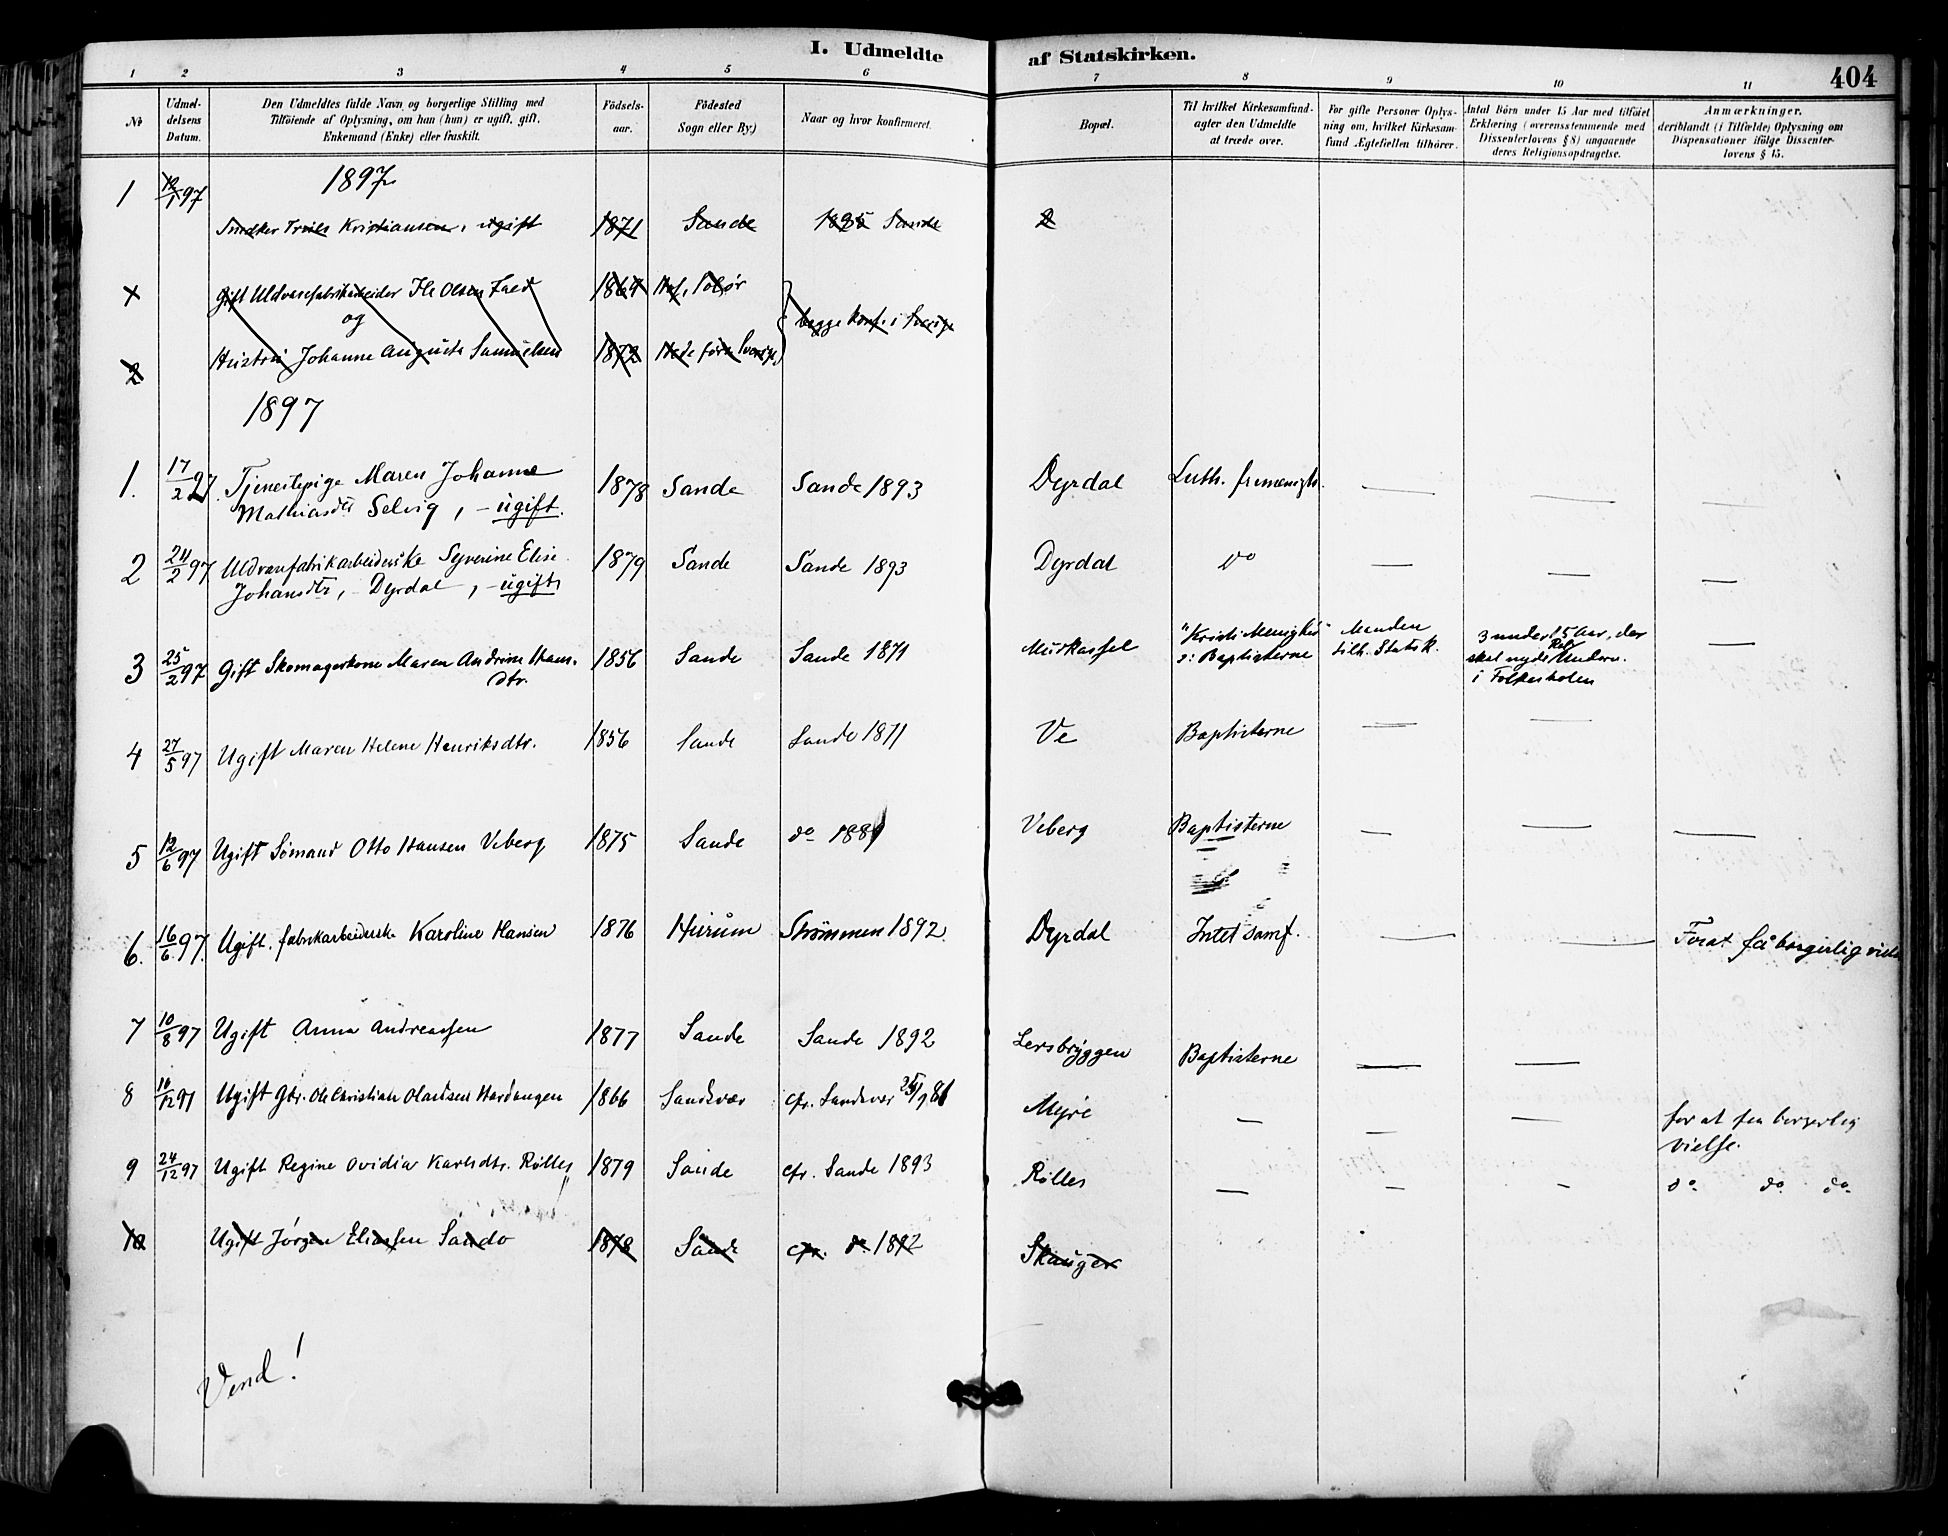 I. Udmeldte af Statskirken.
404
1 2 3 4 5 6 7 8 9 10 11
No
Udmel-
delsens
Datum.
Den Udmeldtes fulde Navn og borgerlige Stilling med
Tilföiende af Oplysning, om han (hun) er ugift, gift,
Enkemand (Enke) eller fraskilt.
Födsels-
aar.
Födested
Sogn eller By.)
Naar og hvor konfirmeret.
Bopæl.
Til hvilket Kirkesamfund-
agter den Udmeldte
at træde over.
For gifte Personer Oplys-
ning om, hvilket Kirkesam-
fund Ægtefællen tilhörer.
Antal Börn under 15 Aar med tilföiet
Erklæring (overensstemmende med
Dissenterlovens § 8) angaaende
deres Religionsopdragelse.
Anmærkninger,
deriblandt (i Tilfælde) Oplysning om
Dispensationer ifölge Dissenter-
lovens § 15.
1897
1 97 Kristiansen, ugift 1871 Sande Sande 2
Gift Uldvarefabrikarbeider Ole Olsen 1864 Hof, Solør
og
begge konf. i Sverige
2 Hustru Johanne Augusta Samuelsen 1872
1897
1. 17/2 97. Tjenestepige Maren Johanne 1878 Sande Sande 1893 Dyrdal Luth. frimenigh.
Mathiasdtr Selvig, – ugift.
2 24/2 97 Uldvarefabrikarbeiderske Syverine Elise 1879 Sande Sande 1893 Dyrdal do
Johansdtr, – Dyrdal, – ugift
3 25/2 97 Gift Skomagerkone Maren Andrine Hans- 1856 Sande Sande 1871 "Kristi Menighed" Manden 3 under 15 Aar, der
dtr. ɔ: Baptisterne tilh. Statsk. skal nyde Rel. Underv.
i Folkeskolen
4 27/5 97 Ugift Maren Helene Henriksdtr. 1856 Sande Sande 1871 Ve Baptisterne
5 12/6 97 Ugift Sømand Otto Hansen Veberg 1875 Sande do Veberg Baptisterne
6. 16/6 97. Ugift. fabrikarbeiderske Karoline Hansen 1876 Hurum Strømmen 1892. Dyrdal Intet samf. For at få borgerlig vielse
7 10/8 97 Ugift Anna Andreassen 1877 Sande Sande 1892 Lersbryggen Baptisterne
8 10/12 97 Ugift Gbr. Ole Christian Olausen Hardangen 1866 Sandsvær cfr. Sandsvær Myre for at faa borgerlig
vielse.
9 24/12 97 Ugift Regine Ovidia Karlsdtr. Rølles 1879 Sande cfr. Sande 1893 Rølles do do do
10 Ugift Jørgen Eliassen Sando 1878 Sande cfr. do 1892 Skauger
Vend!